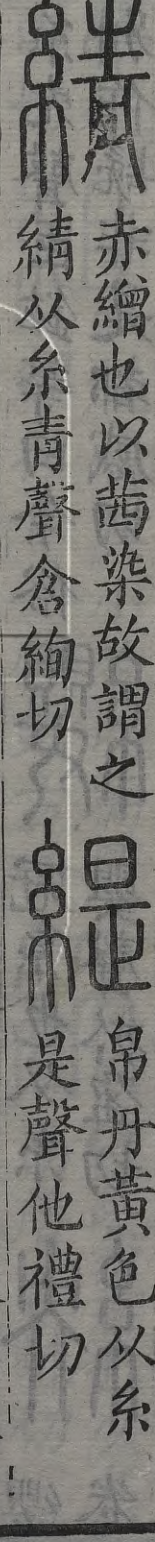 綪
赤繒也以茜染故謂之
綪从糸青聲倉絢切
緹
帛丹黃色从糸
是聲他禮切